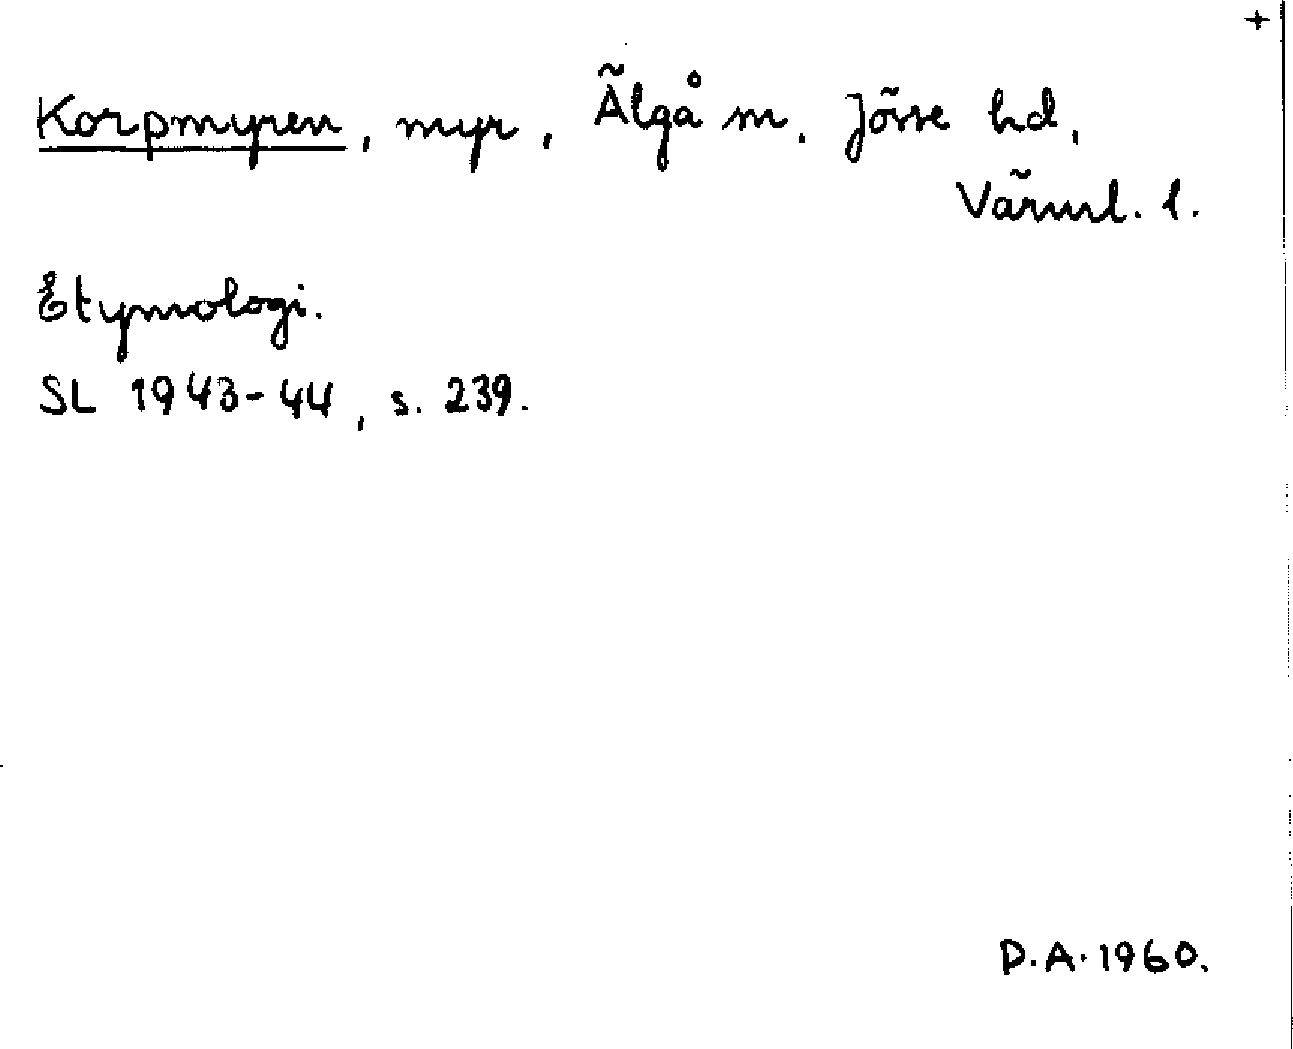 +
Korpmyren, myr, Älgå sn. Jösse hd,
Värml. l.
Etymologi.
SL 1943-44, s. 239.
D.A. 1960.